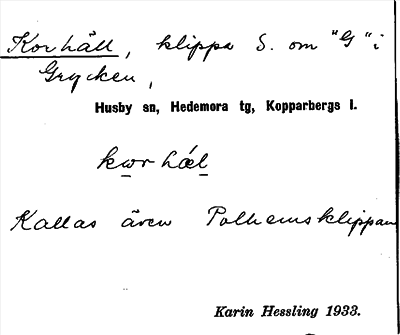 Korhäll, klippa S. om "G" i
Grycken,
Husby sn, Hedemora tg, Kopparbergs l.
kwr hæl
Kallas även Polhemsklippan
Karin Hessling 1933.